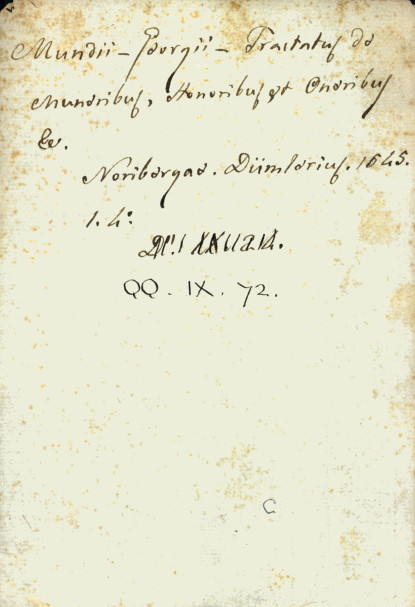 Mundii - Georgii - Tractatus de
Muneribus, Honoribus et Oneribus
&c.
Noribergae. Dümlerius. 1645.
1. 4º.
QQ. IX. 72.
C